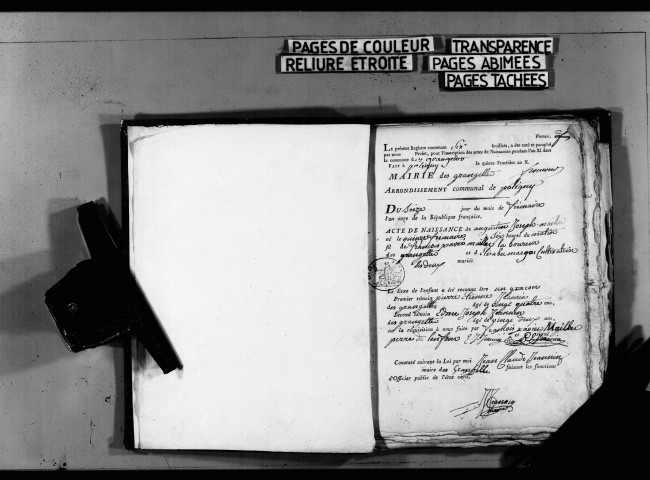 PAGES DE COULEUR
TRANSPARENCE
RELIURE ETROITE
PAGES ABIMEES
PAGES TACHEES
Premier
Le présent Registre contenant Six feuillets, a été coté et paraphé
par nous Préfet, pour l'inscription des actes de Naissances pendant l'an XI dans
la commune des grangettes
FAIT à poligny le quinze Fructidor an X.
MAIRIE des grangettes
ARRONDISSEMENT communal de poligny
DU Seize jour du mois de frimaire
l'an onze de la République française.
ACTE DE NAISSANCE de augustin Joseph maillet
né le quinze frimaire à Six heures du matin
fil de françois xavier maillet laboureur
des grangettes et d
mariés
Le sexe de l'enfant a été reconnu être un garçon
Premier témoin pierre Etienne
des grangettes âgé de vingt quatre ans,
Second témoin Edme Joseph
des grangettes âgé de vingt deux ans,
sur la réquisition à nous faite par françois xavier Maillet
perre de l'enfant
Constaté suivant la Loi par moi Jean Claude
maire des Grangette faisant les fonctions
d'Officier public de l'état civil.